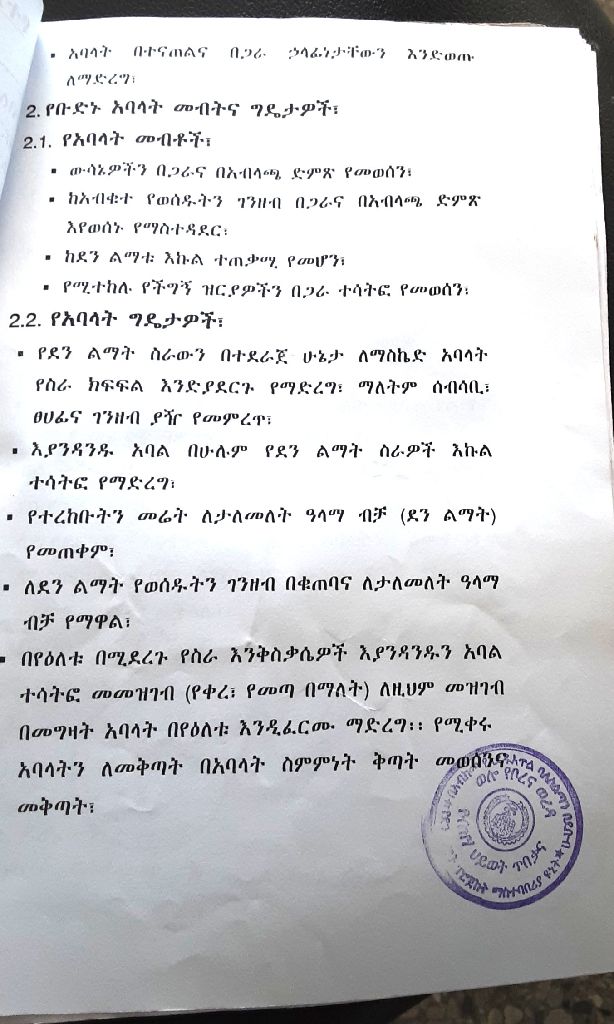 ▪ አባላት በተናጠልና በጋራ ኃላፊነታቸውን እንድወጡ
ለማድረግ፣
2. የቡድኑ አባላት መብትና ግዴታዎች፣
2.1. የአባላት መብቶች፣
▪ ውሳኔዎችን በጋራና በአብላጫ ድምጽ የመወሰን፣
▪ ከአብቁተ የወሰዱትን ገንዘብ በጋራና በአብላጫ ድምጽ
እየወሰኑ የማስተዳደር፣
▪ ከደን ልማቱ እኩል ተጠቃሚ የመሆን፣
▪ የሚተከሉ የችግኝ ዝርያዎችን በጋራ ተሳትፎ የመወሰን፣
2.2. የአባላት ግዴታዎች፣
▪ የደን ልማት ስራውን በተደራጀ ሁኔታ ለማስኬድ አባላት
የስራ ክፍፍል እንድያደርጉ የማድረግ፣ ማለትም ሰብሳቢ፣
ፀሀፊና ገንዘብ ያዥ የመምረጥ፣
▪ እያንዳንዱ አባል በሁሉም የደን ልማት ስራዎች እኩል
ተሳትፎ የማድረግ፣
▪ የተረከቡትን መሬት ለታለመለት ዓላማ ብቻ (ደን ልማት)
የመጠቀም፣
▪ ለደን ልማት የወሰዱትን ገንዘብ በቁጠባና ለታለመለት ዓላማ
ብቻ የማዋል፣
▪ በየዕለቱ በሚደረጉ የስራ እንቅስቃሴዎች እያንዳንዱን አባል
ተሳትፎ መመዝገብ (የቀረ፣ የመጣ በማለት) ለዚህም መዝገብ
በመግዛት አባላት በየዕለቱ እንዲፈርሙ ማድረግ፡፡ የሚቀሩ
አባላትን ለመቅጣት በአባላት ስምምነት ቅጣት መወሰንና
መቅጣት፣
ወሎ የቦረና ወረዳ
ሀይወት ጥበቃና
ማስተባበሪያ ዩኒት